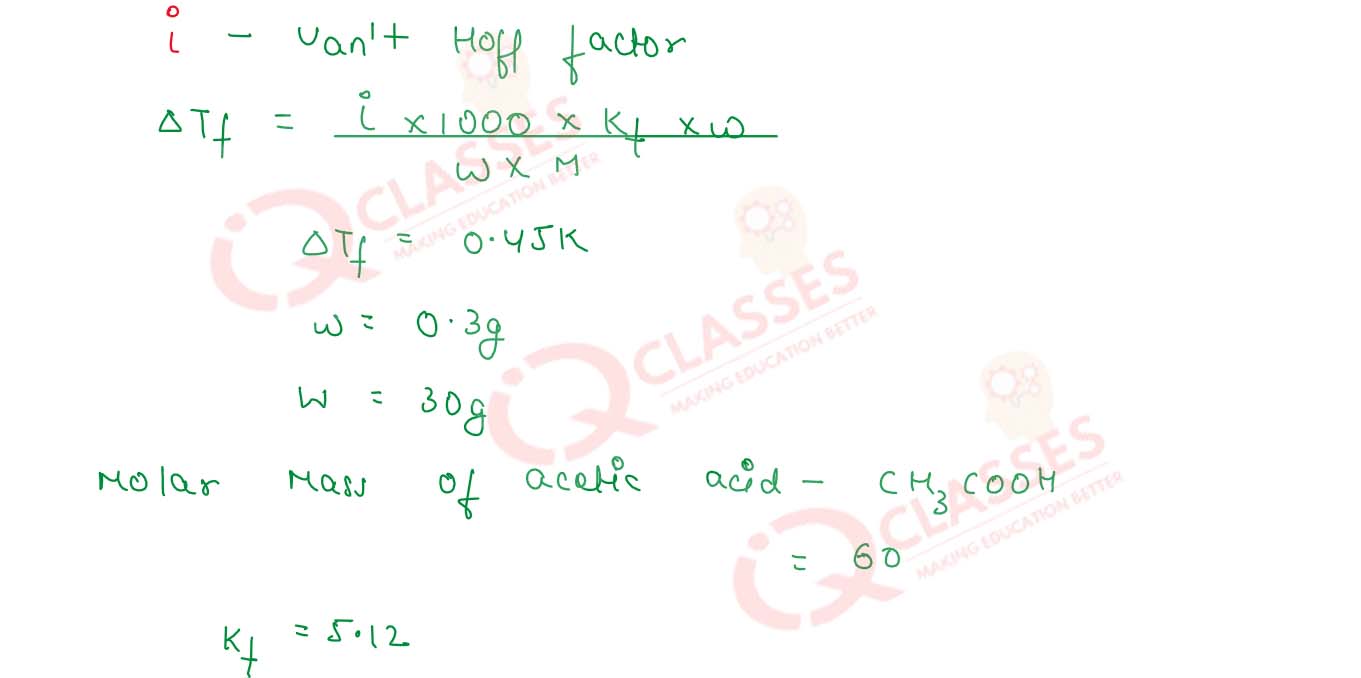 i - van't Hoff factor
ΔTf = i × 1000 × Kf × w
W × M
ΔTf = 0.45K
w = 0.3g
W = 30g
Molar Mass of acetic acid - CH3COOH
= 60
Kf = 5.12
iQ CLASSES
MAKING EDUCATION BETTER
iQ CLASSES
MAKING EDUCATION BETTER
iQ CLASSES
MAKING EDUCATION BETTER